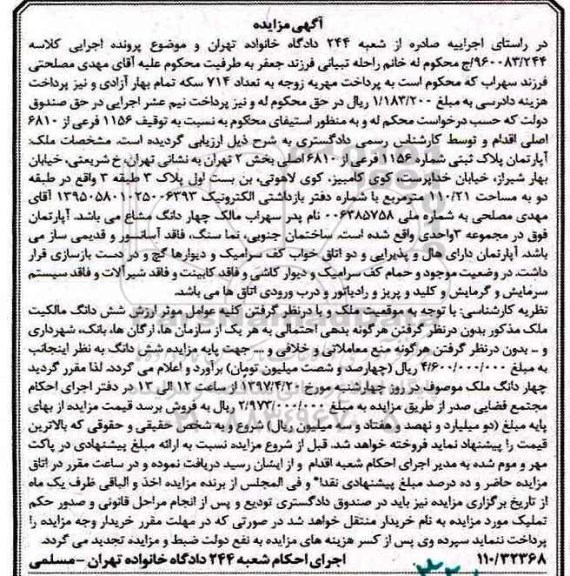 آگهی مزایده
در راستای اجراییه صادره از شعبه ۲۴۴ دادگاه خانواده تهران و موضوع پرونده اجرایی کلاسه
۹۶۰۰۸۳/۲۴۴/ج محکوم له خانم راحله تبیانی فرزند جعفر به طرفیت محکوم علیه آقای مهدی مصلحتی
فرزند سهراب که محکوم است به پرداخت مهریه زوجه به تعداد ۷۱۴ سکه تمام بهار آزادی و نیز پرداخت
هزینه دادرسی به مبلغ ۱/۱۸۳/۲۰۰ ریال در حق محکوم له و نیز پرداخت نیم عشر اجرایی در حق صندوق
دولت که حسب درخواست محکم له و به منظور استیفای محکوم به نسبت به توقیف ۱۱۵۶ فرعی از ۶۸۱۰
اصلی اقدام و توسط کارشناس رسمی دادگستری به شرح ذیل ارزیابی گردیده است. مشخصات ملک:
آپارتمان پلاک ثبتی شماره ۱۱۵۶ فرعی از ۶۸۱۰ اصلی بخش ۲ تهران به نشانی تهران، خ شریعتی، خیابان
بهار شیراز، خیابان خداپرست، کوی کامبیز، کوی لاهوتی، بن بست اول پلاک ۳ طبقه ۳ واقع در طبقه
دو به مساحت ۱۰۰/۲۱ مترمربع با شماره دفتر بازداشتی الکترونیک ۱۳۹۵۰۵۸۰۱۰۲۵۰۰۶۳۹۳ آقای
مهدی مصلحی به شماره ملی ۰۰۶۳۸۵۷۵۸ نام پدر سهراب مالک چهار دانگ مشاع می باشد. آپارتمان
فوق در مجموعه ۳واحدی واقع شده است. ساختمان جنوبی، نما سنگ، فاقد آسانسور و قدیمی ساز می
باشد. آپارتمان دارای هال و پذیرایی و دو اتاق خواب کف سرامیک و دیوارها گچ و در دست بازسازی قرار
داشت. در وضعیت موجود و حمام کف سرامیک و دیوار کاشی و فاقد کابینت و فاقد شیرآلات و فاقد سیستم
سرمایش و گرمایش و کلید و پریز و رادیاتور و درب ورودی اتاق ها می باشد.
نظریه کارشناسی: با توجه به موقعیت ملک و با درنظر گرفتن کلیه عوامل موثر ارزش شش دانگ مالکیت
ملک مذکور بدون درنظر گرفتن هرگونه بدهی احتمالی به هر یک از سازمان ها، ارگان ها، بانک، شهرداری
و ... بدون درنظر گرفتن هرگونه منع معاملاتی و خلافی و ... جهت پایه مزایده شش دانگ به نظر اینجانب
به مبلغ ۴/۶۰۰/۰۰۰/۰۰۰ ریال (چهارصد و شصت میلیون تومان) برآورد و اعلام می گردد. لذا مقرر گردید
چهار دانگ ملک موصوف در روز چهارشنبه مورخ ۱۳۹۷/۴/۲۰ از ساعت ۱۲ الی ۱۳ در دفتر اجرای احکام
مجتمع قضایی صدر از طریق مزایده به مبلغ ۲/۹۷۳/۰۰۰/۰۰۰ ریال به فروش برسد قیمت مزایده از بهای
پایه مبلغ (دو میلیارد و نهصد و هفتاد و سه میلیون ریال) شروع و به شخص حقیقی و حقوقی که بالاترین
قیمت را پیشنهاد نماید فروخته خواهد شد. قبل از شروع مزایده نسبت به ارائه مبلغ پیشنهادی در پاکت
مهر و موم شده به مدیر اجرای احکام شعبه اقدام و از ایشان رسید دریافت نموده و در ساعت مقرر در اتاق
مزایده حاضر و ده درصد مبلغ پیشنهادی نقدا" و فی المجلس از برنده مزایده اخذ و الباقی ظرف یک ماه
از تاریخ برگزاری مزایده نیز باید در صندوق دادگستری تودیع و پس از انجام مراحل قانونی و صدور حکم
تملیک مورد مزایده به نام خریدار منتقل خواهد شد در صورتی که در مهلت مقرر خریدار وجه مزایده را
پرداخت ننماید سپرده وی پس از کسر هزینه های مزایده به نفع دولت ضبط و مزایده تجدید می گردد.
۱۱۰/۳۲۳۶۸ اجرای احکام شعبه ۲۴۴ دادگاه خانواده تهران -مسلمی